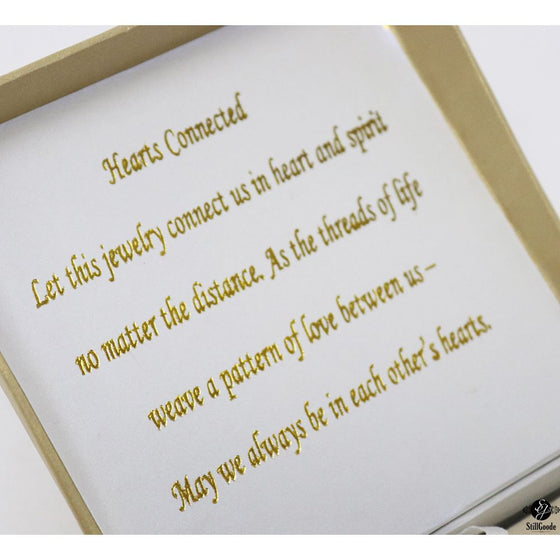 Hearts Connected
Let this jewelry connect us in heart and spirit
no matter the distance. As the threads of life
weave a pattern of love between us –
May we always be in each other's hearts.
StillGoode